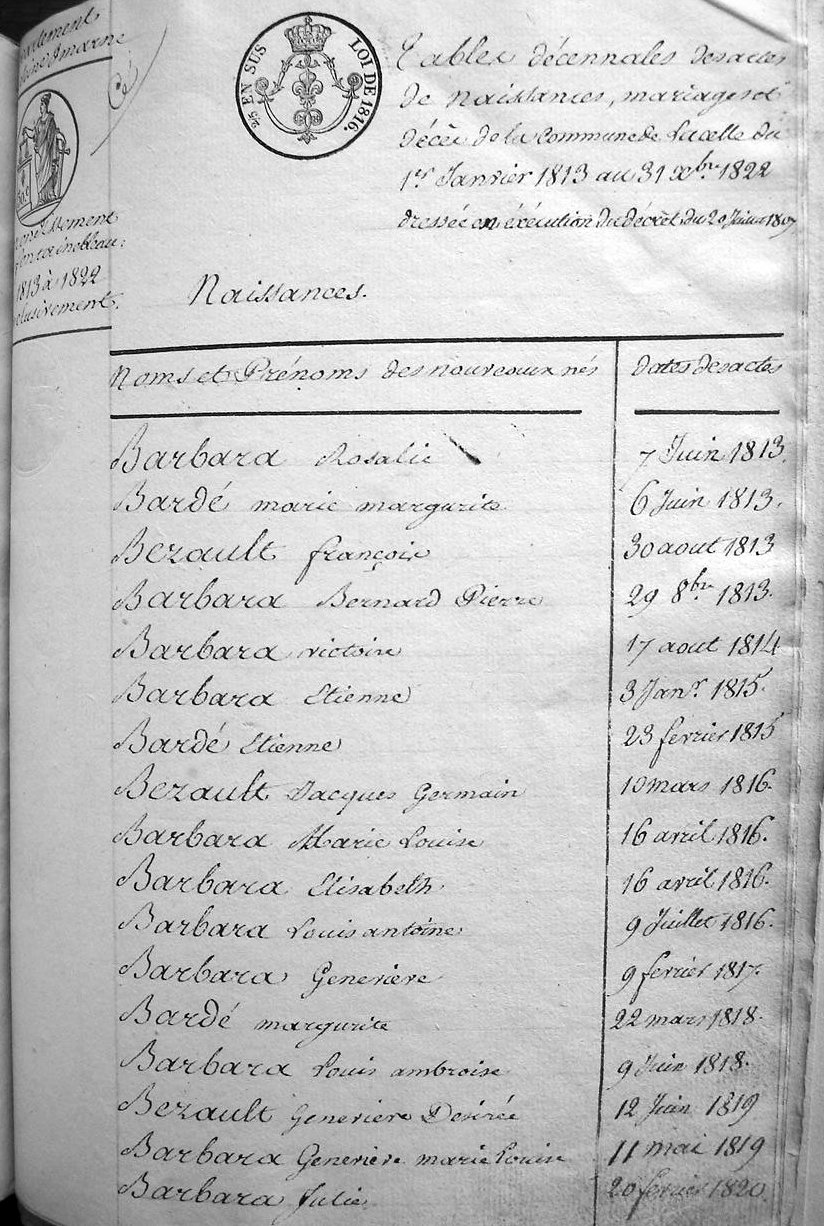 Cé
25 EN SUS LOI DE 1816.
Tables décennales des actes
de Naissances, mariages et
décès de la Commune de Lacelle du
1er Janvier 1813 au 31 Xbre 1822
dressée en éxécution du décrêt du 20 Juillet 1807
1813 à 1822
Naissances.
Noms et Prénoms des nouveaux nés Dates des actes
Barbara Rosalie 7 Juin 1813.
Bardé marie margurite 6 Juin 1813.
Bezault françois 30 aout 1813
Barbara Bernard Pierre 29 8bre 1813.
Barbara victoire 17 aout 1814
Barbara Etienne 3 Janr. 1815.
Bardé Etienne 23 fevrier 1815
Bezault Jacques Germain 10 mars 1816.
Barbara Marie Louise 16 avril 1816.
Barbara Elisabeth 16 avril 1816.
Barbara Louis antoine 9 Juillet 1816.
Barbara Genevieve 9 fevrier 1817.
Bardé margurite 22 mars 1818.
Barbara Louis ambroise 9 Juin 1818.
Bezault Genevieve Desirée 12 Juin 1819
Barbara Genevieve marie Louise 11 mai 1819
Barbara Julie 20 fevrier 1820